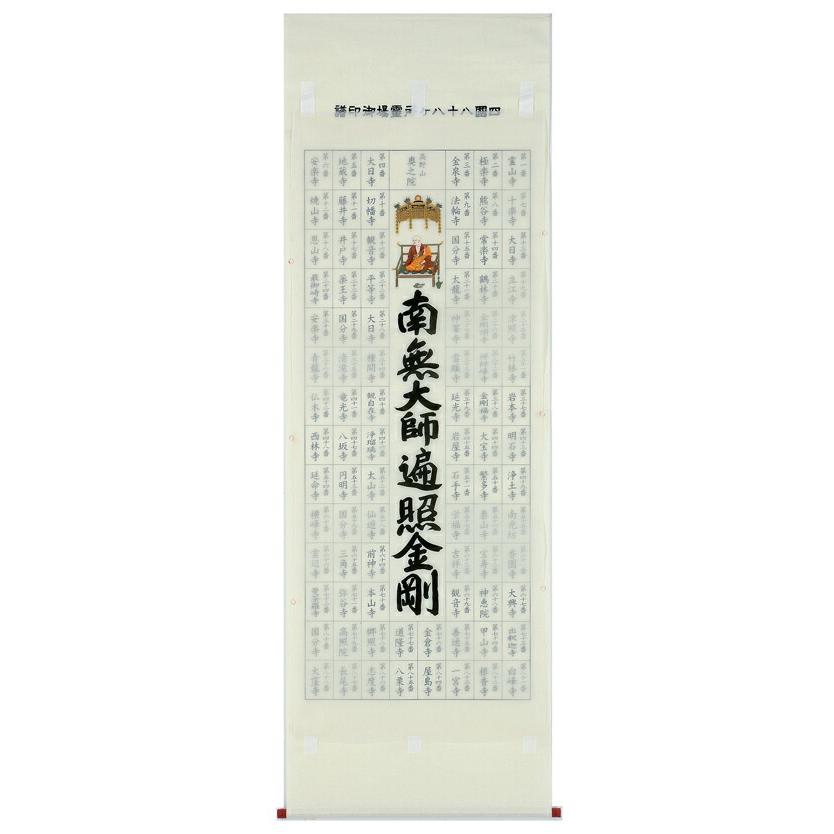 四國八十八ヶ所靈場御印譜
第一番 霊山寺
第二番 極楽寺
第三番 金泉寺
高野山 奥之院
第四番 大日寺
第五番 地蔵寺
第六番 安楽寺
第七番 十楽寺
第八番 熊谷寺
第九番 法輪寺
第十番 切幡寺
第十一番 藤井寺
第十二番 焼山寺
第十三番 大日寺
第十四番 常楽寺
第十五番 国分寺
第十六番 観音寺
第十七番 井戸寺
第十八番 恩山寺
第十九番 立江寺
第二十番 鶴林寺
第二十一番 太龍寺
第二十二番 平等寺
第二十三番 薬王寺
第二十四番 最御崎寺
津照寺
金剛頂寺
神峯寺
第二十八番 大日寺
第二十九番 国分寺
第三十番 安楽寺
竹林寺
禅師峰寺
雪蹊寺
種間寺
清滝寺
青龍寺
第三十七番 岩本寺
第三十八番 金剛福寺
第三十九番 延光寺
第四十番 観自在寺
第四十一番 竜光寺
第四十二番 仏木寺
第四十三番 明石寺
第四十四番 大宝寺
第四十五番 岩屋寺
第四十六番 浄瑠璃寺
第四十七番 八坂寺
第四十八番 西林寺
第四十九番 浄土寺
第五十番 繁多寺
第五十一番 石手寺
第五十二番 太山寺
第五十三番 円明寺
第五十四番 延命寺
南光坊
泰山寺
栄福寺
仙遊寺
国分寺
横峰寺
香園寺
宝寿寺
吉祥寺
第六十四番 前神寺
第六十五番 三角寺
第六十六番 雲辺寺
第六十七番 大興寺
第六十八番 神恵院
第六十九番 観音寺
第七十番 本山寺
第七十一番 弥谷寺
第七十二番 曼荼羅寺
第七十三番 出釈迦寺
第七十四番 甲山寺
第七十五番 善通寺
第七十六番 金倉寺
第七十七番 道隆寺
第七十八番 郷照寺
第七十九番 高照院
第八十番 国分寺
第八十一番 白峰寺
第八十二番 根香寺
第八十三番 一宮寺
第八十四番 屋島寺
第八十五番 八栗寺
第八十六番 志度寺
第八十七番 長尾寺
第八十八番 大窪寺
南無大師遍照金剛